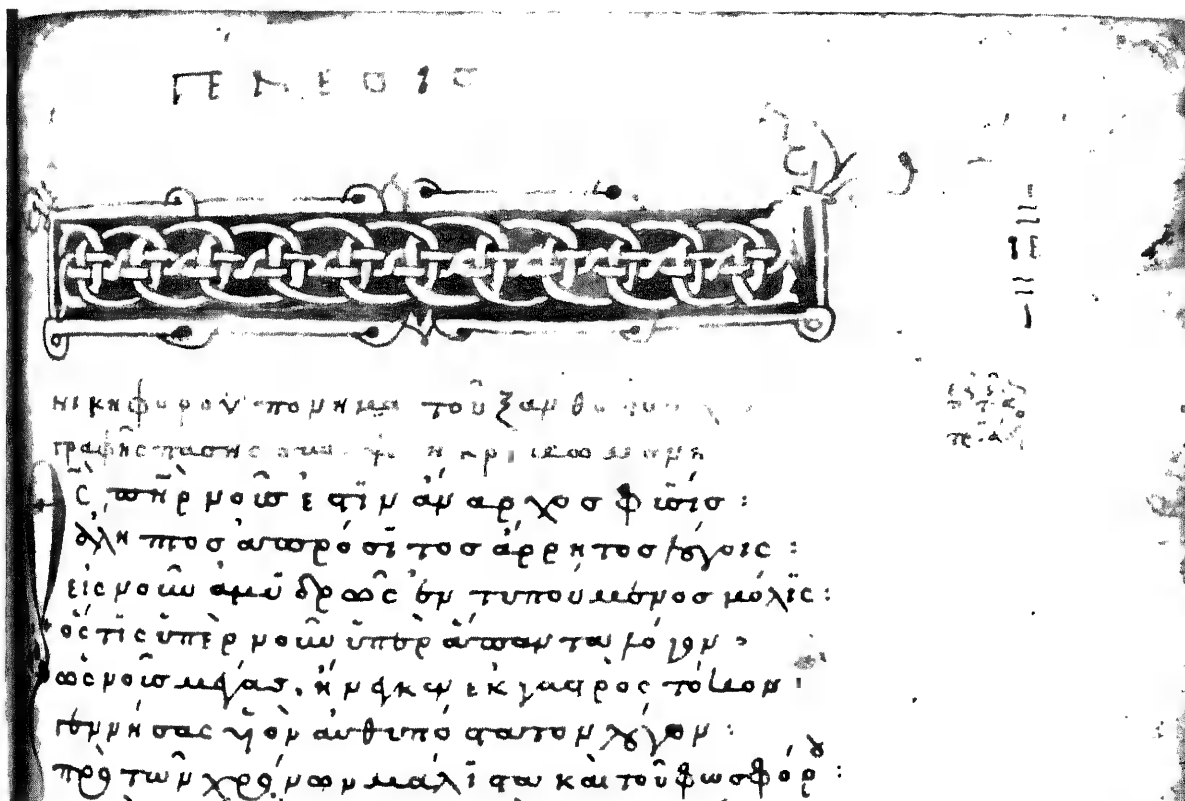 ΓΕΝΕϹΙϹ
ΙΕ
νικηφόρου ὑπόμνημα τοῦ ξανθο
γραφῆς πάσης
Ὁ πῆρ νοῦς ἐστὶν ἄναρχος φύσις :
ἄληπτος ἀπρόσιτος ἄρρητος λόγοις :
εἰς νοῦν ἀμυδρῶς ἐντυπούμενος μόλις :
ὅστις ὑπὲρ νοῦν ὑπὲρ ἅπαντα λόγον
ὡς νοῦς μέγας, ἤνεγκεν ἐκ γαστρὸς τόκον
γεννήσας υἱὸν ἀνθυπόστατον λόγον :
πρὸ τῶν χρόνων μάλιστα καὶ τοῦ φωσφόρου :